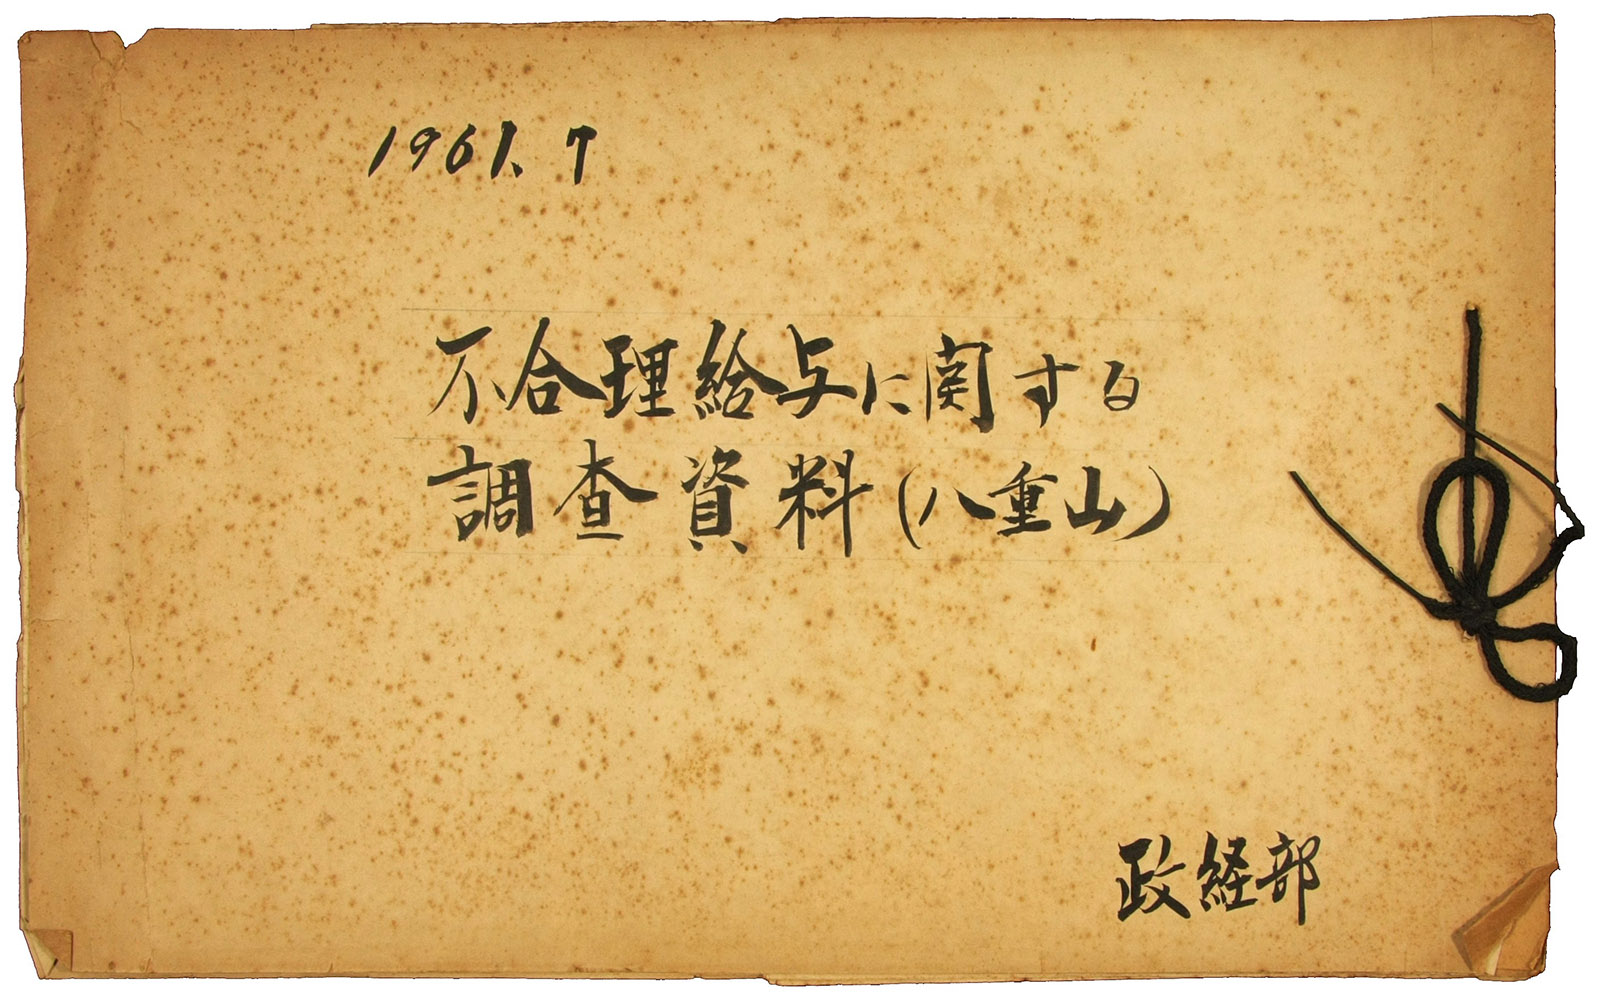 1961. 7
不合理給与に関する
調査資料(八重山)
政経部